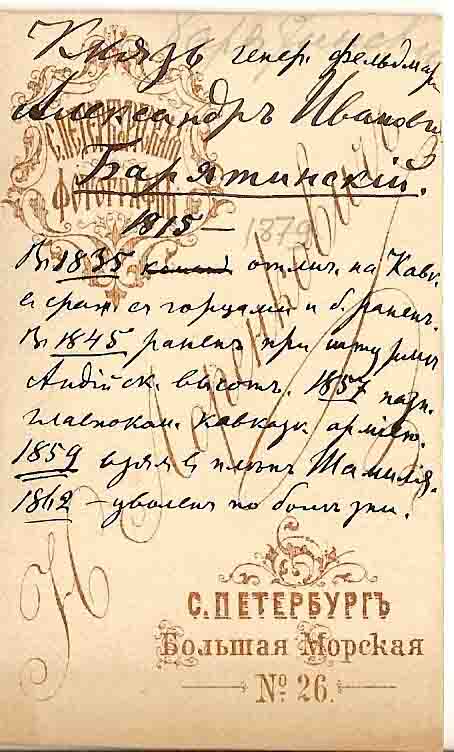 Князь генер. фельдмар.
Александръ Иванович
Барятинскій.
1815 – 1879
Въ 1835 команд отлич. на Кавк.
в сраж. съ горцами и б. ранен.
Въ 1845 ранен при штурмѣ
Андійск. высотъ. 1857 назн.
главноком. кавказк. арміею.
1859 взял в плѣнъ Шамиля.
1862 – уволен по болѣзни.
С. ПЕТЕРБУРГСКАЯ
ФОТОГРАФІЯ
С. ПЕТЕРБУРГЪ
Большая Морская
№ 26.